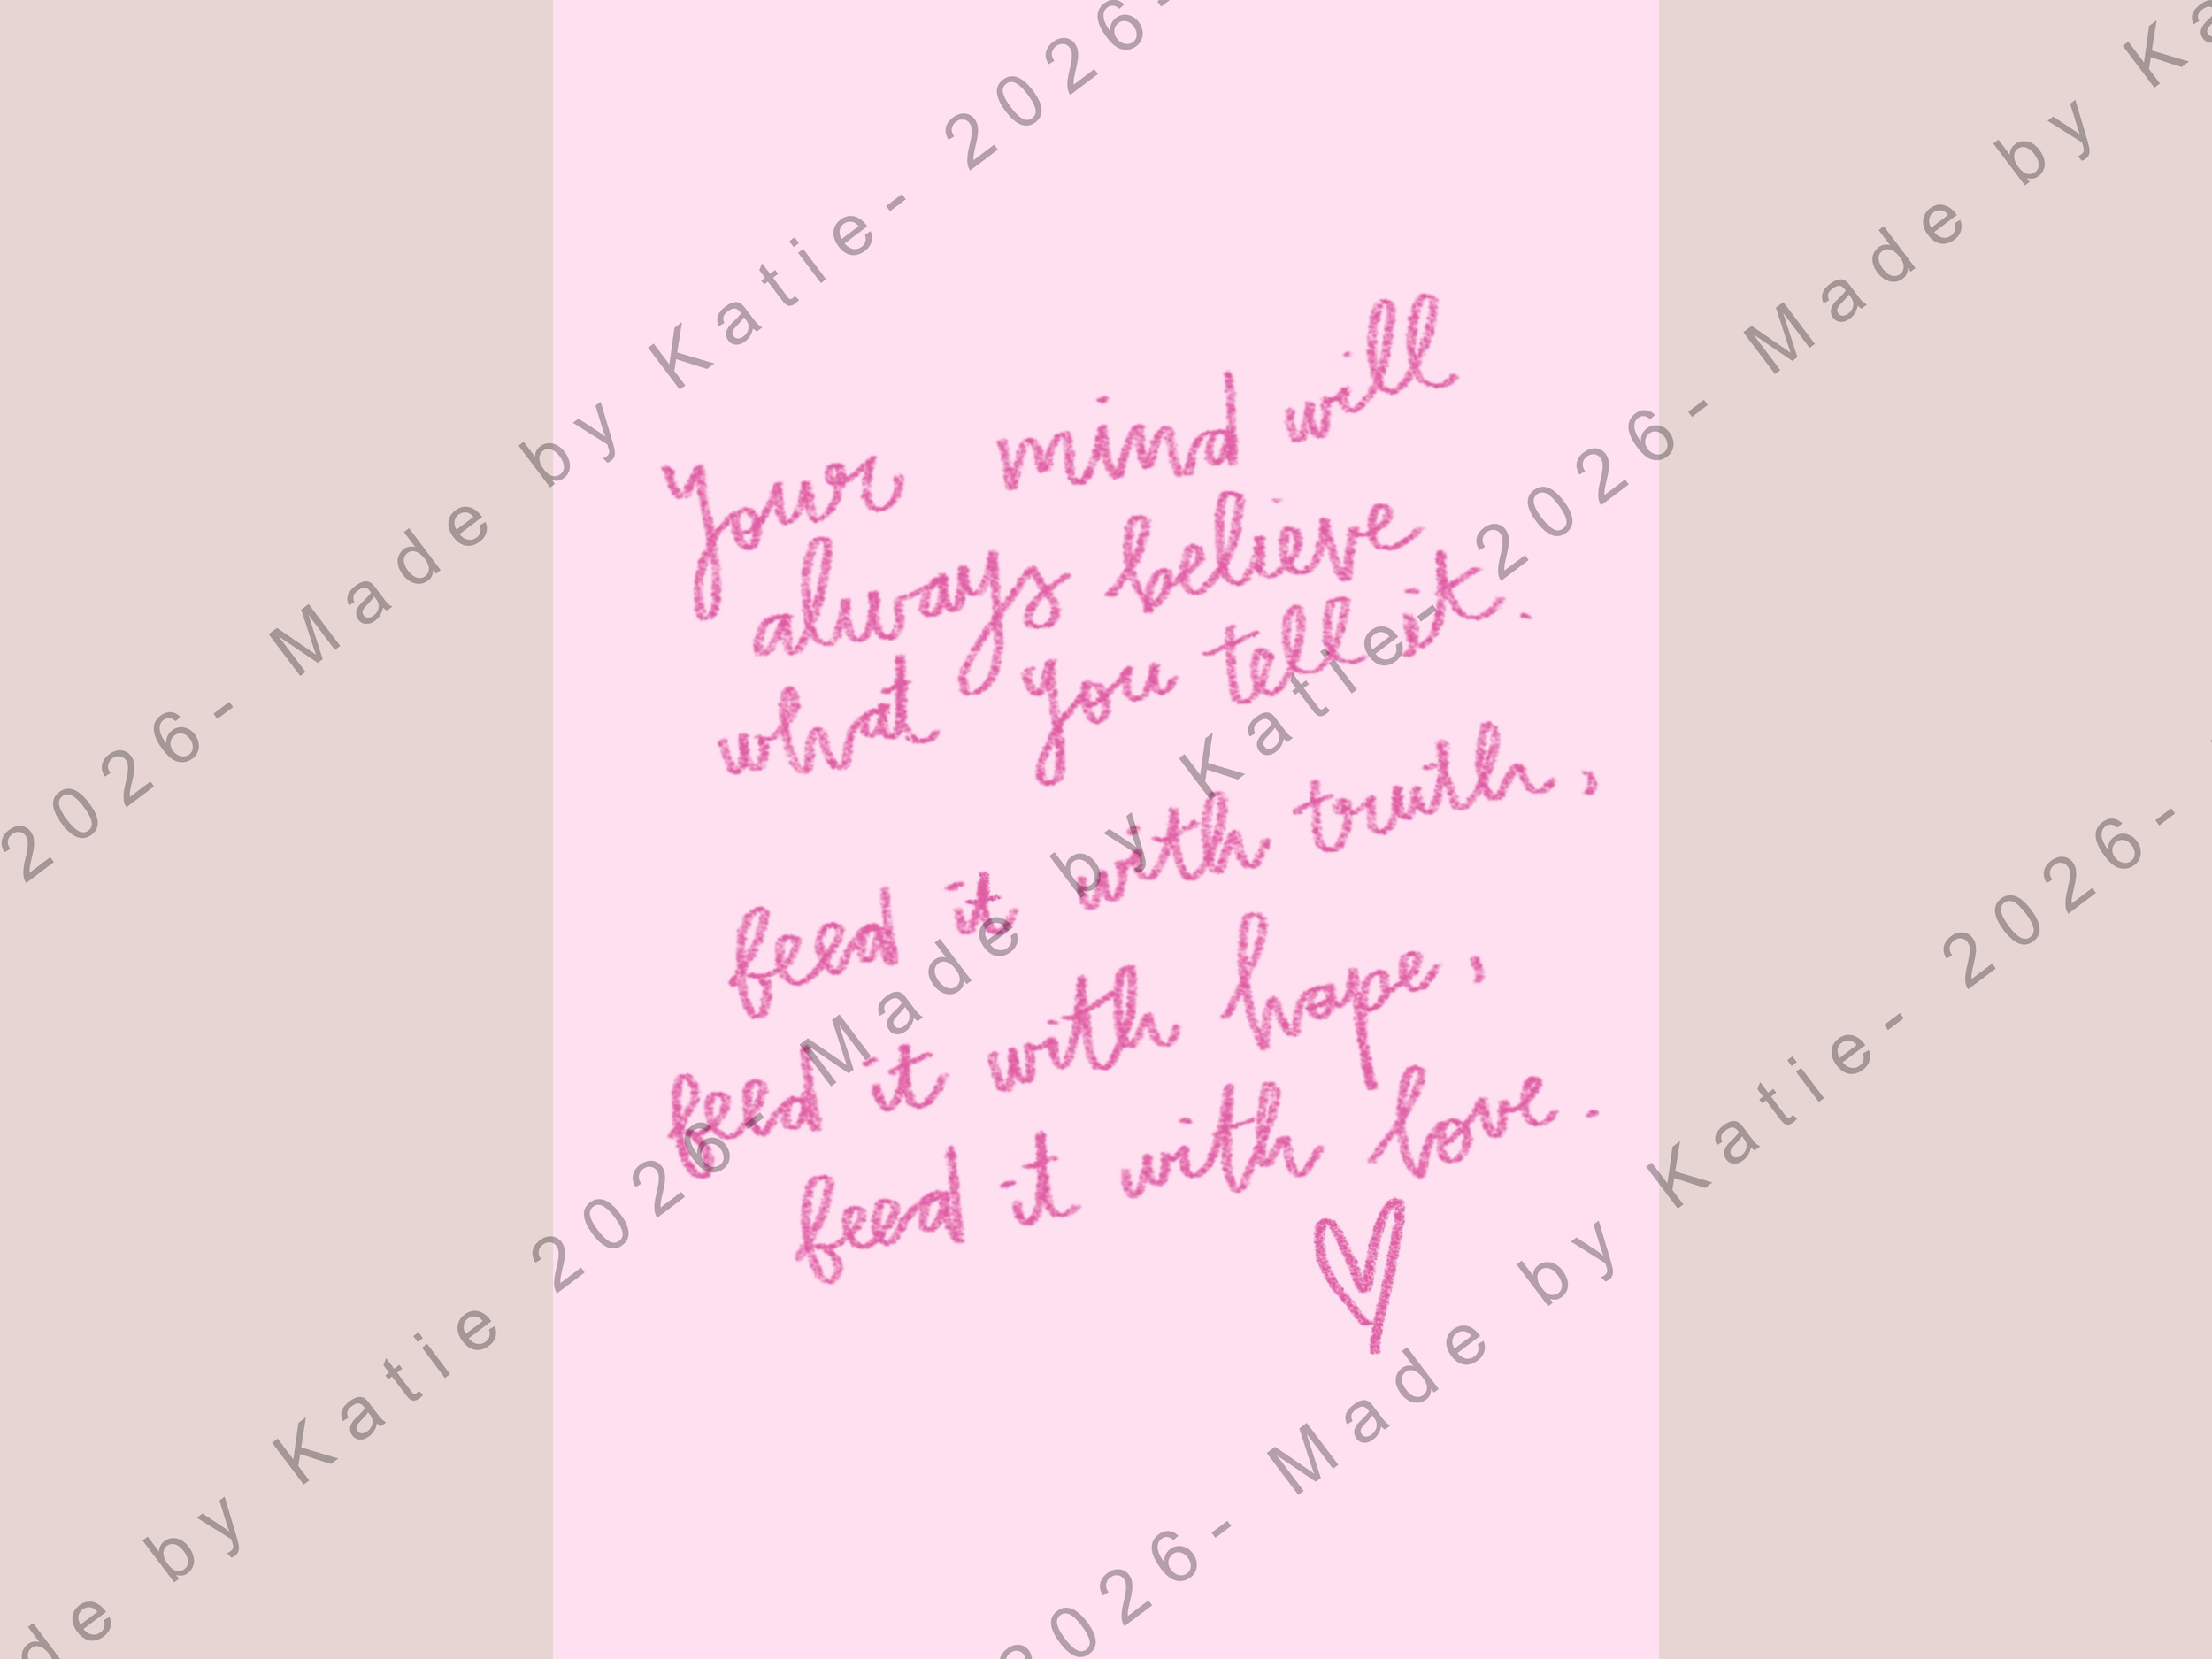 your mind will
always believe
what you tell it.
feed it with truth,
feed it with hope,
feed it with love.
2026- Made by Katie- 2026-
Made by Ka
2026- Made by Katie- 2026-
de by Katie 2026- Made by Katie- 2026- Made by Ka
2026- Made by Katie- 2026-